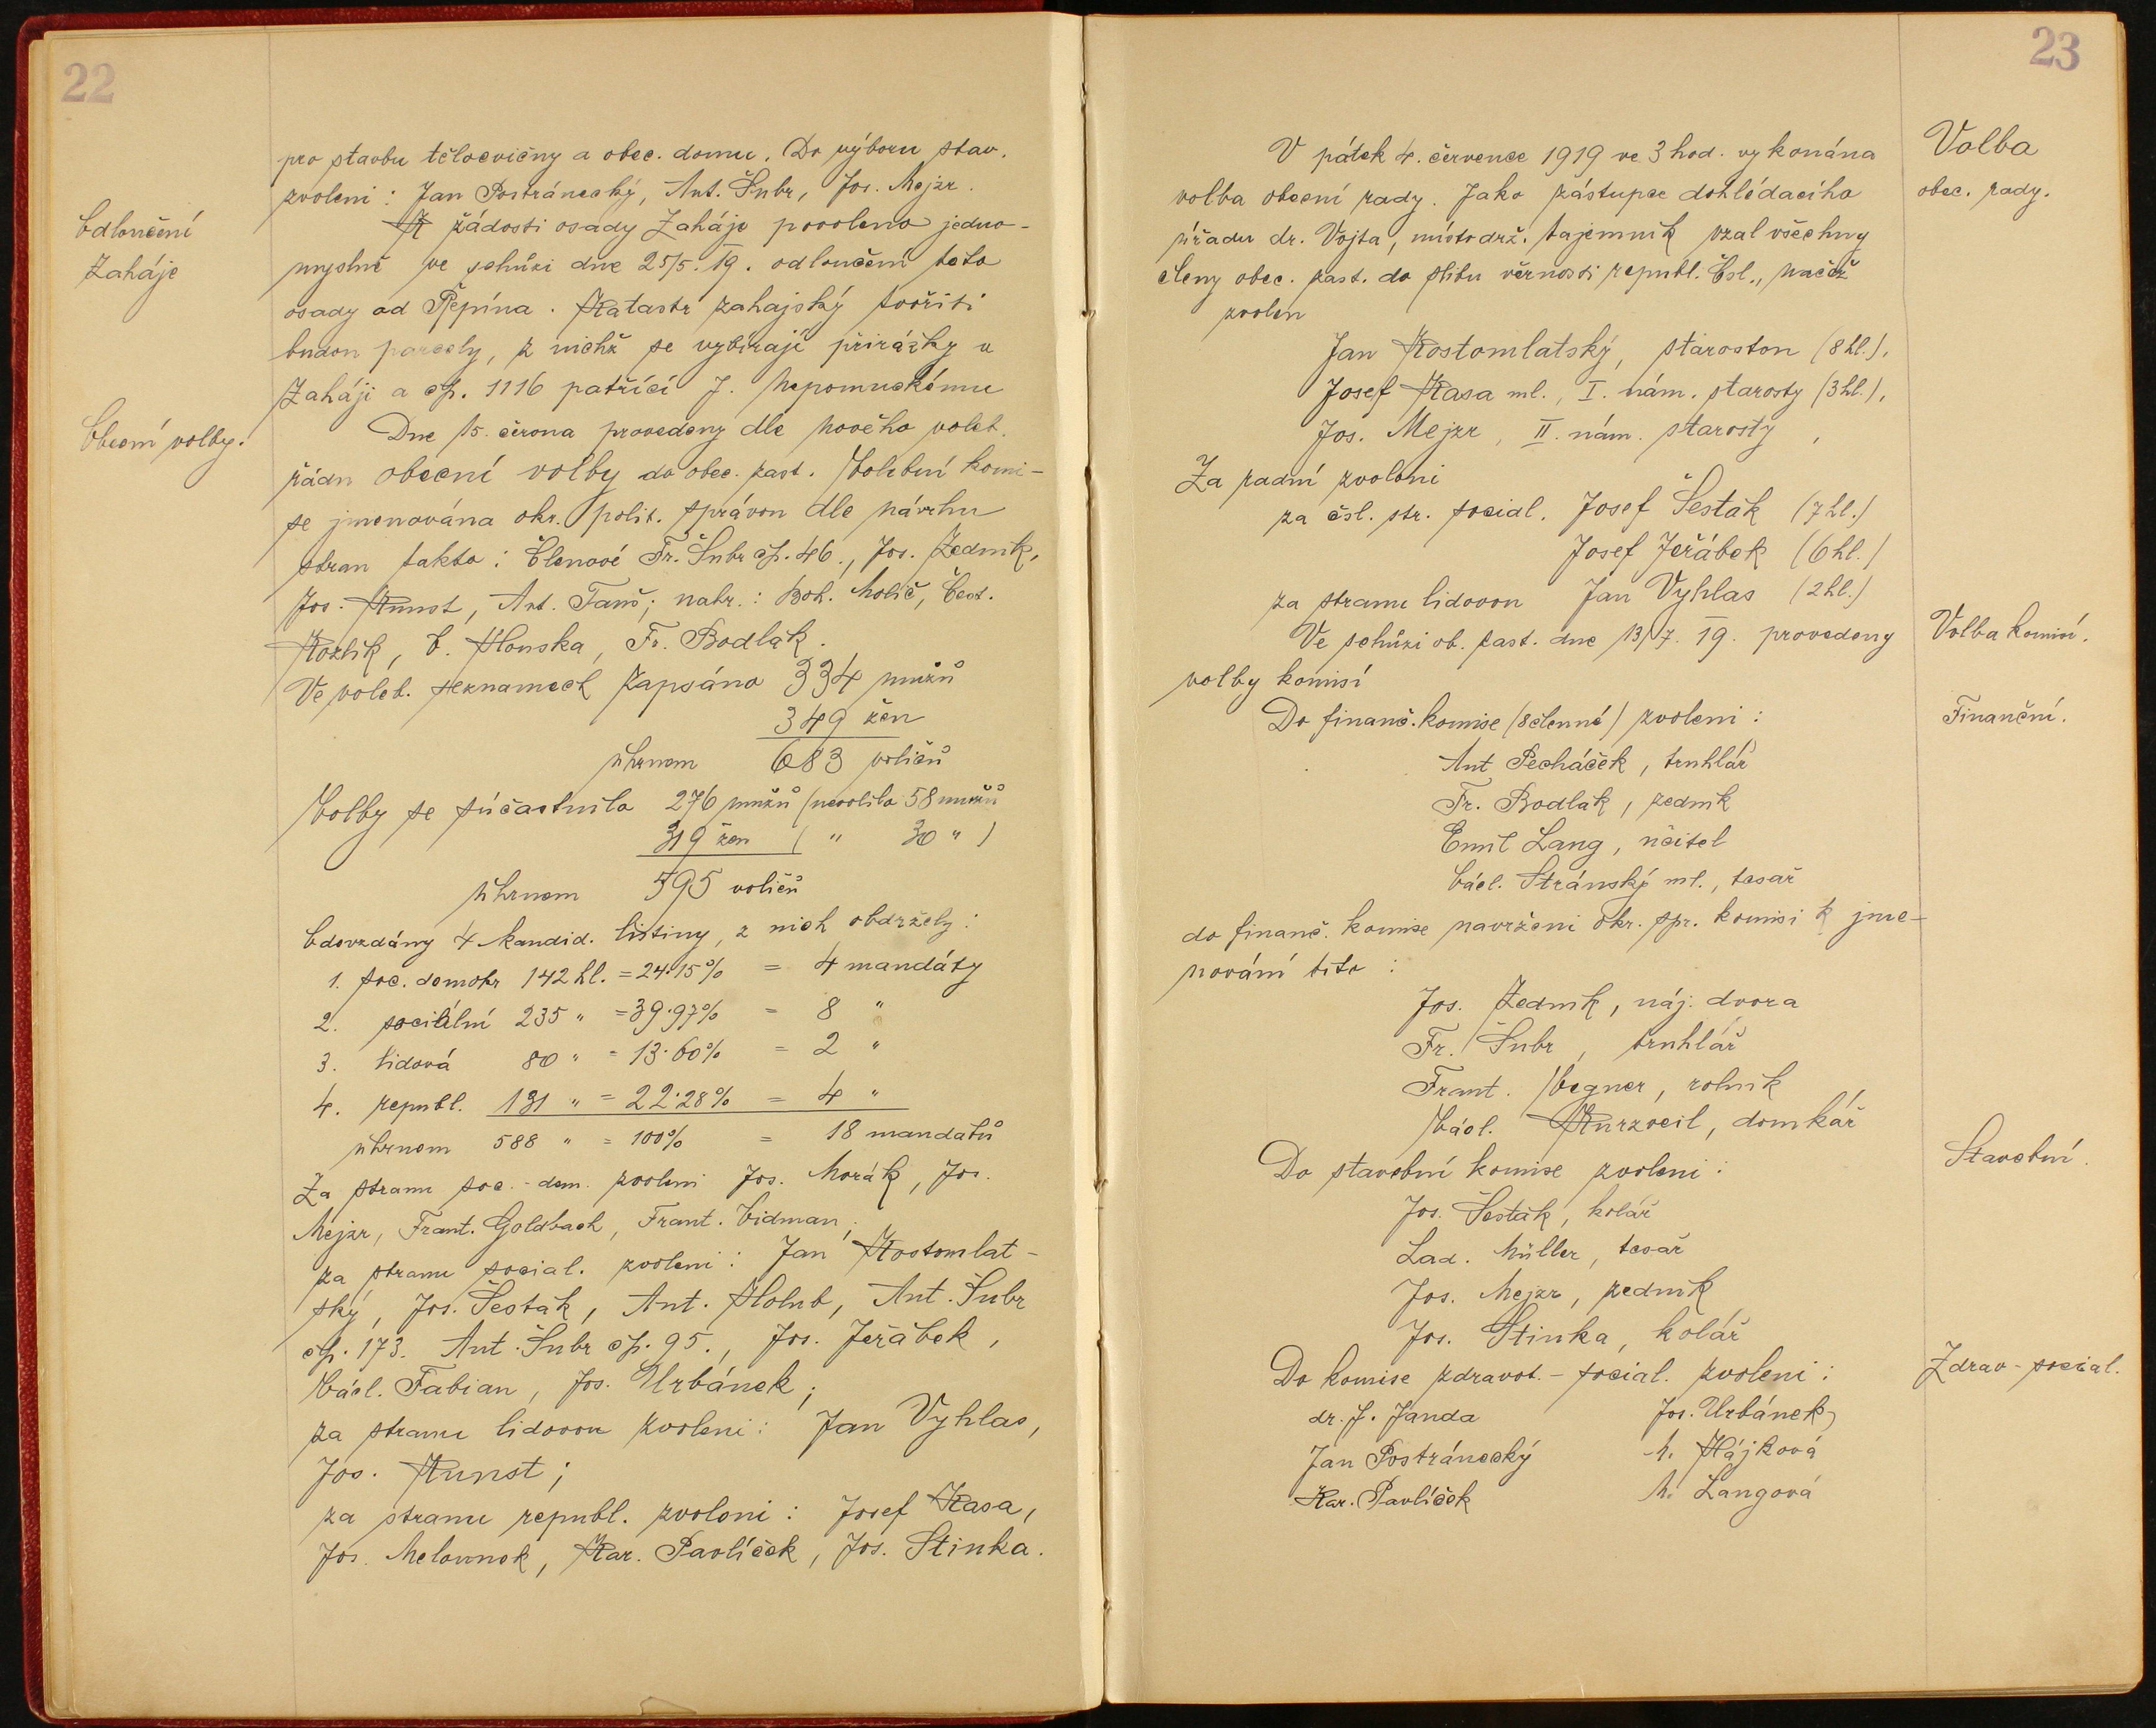 22
pro stavbu tělocvičny a obec. domu. Do výboru stav.
zvoleni: Jan Postránecký, Ant. Šubr, Jos. Mejzr.
Odloučení
Zaháje
K žádosti osady Zaháje povoleno jedno-
myslně ve schůzi dne 25/5. 19. odloučení této
osady od Řepína. Katastr zahajský tvořiti
budou parcely, z nichž se vybírají přirážky v
Zaháji a čp. 1116 patřící J. Nepomuckému
Obecní volby.
Dne 15. června provedeny dle nového voleb.
řádu obecní volby do obec. zast. Volební komi-
se jmenována okr. polit. správou dle návrhu
stran takto: Členové Fr. Šubr čp. 46., Jos. Zedník,
Jos. Kunst, Ant. Fanš; nahr.: Boh. Molič, Čest.
Kozlík, O. Hlouska, Fr. Bodlák.
Ve voleb. seznamech zapsáno 334 mužů
349 žen
úhrnem 683 voličů
Volby se súčastnilo 276 mužů (nevolilo 58 mužů
319 žen ( " 30 " )
úhrnem 595 voličů
Odevzdány 4 kandid. listiny, z nich obdržely:
1. soc. demokr 142 hl. = 24·15% = 4 mandáty
2. sociální 235 " = 39·97% = 8 "
3. lidová 80 " = 13·60% = 2 "
4. republ. 131 " = 22·28% = 4 "
úhrnem 588 " = 100% = 18 mandátů
Za stranu soc.-dem. zvoleni Jos. Morák, Jos.
Mejzr, Frant. Goldbach, Frant. Vidman;
za stranu social. zvoleni: Jan Kostomlat-
ský, Jos. Šesták, Ant. Holub, Ant. Šubr
čp. 173. Ant. Šubr čp. 95., Jos. Jeřábek,
Václ. Fabian, Jos. Urbánek;
za stranu lidovou zvoleni: Jan Vyhlas,
Jos. Kunst;
za stranu republ. zvoleni: Josef Kasa,
Jos. Melounek, Kar. Pavlíček, Jos. Stinka.
23
V pátek 4. července 1919 ve 3 hod. vykonána
Volba
volba obecní rady. Jako zástupce dohlédacího
obec. rady.
úřadu dr. Vojta, místodrž. tajemník vzal všechny
členy obec. zast. do slibu věrnosti republ. Čsl., načež
zvolen
Jan Kostomlatský, starostou (8 hl.),
Josef Kasa ml., I. nám. starosty (3 hl.),
Jos. Mejzr, II. nám. starosty,
Za radní zvoleni
za čsl. str. social. Josef Šesták (7 hl.)
Josef Jeřábek (6 hl.)
za stranu lidovou Jan Vyhlas (2 hl.)
Ve schůzi ob. zast. dne 13/7. 19. provedeny
Volba komisí.
volby komisí
Do finanč. komise (8členné) zvoleni:
Finanční.
Ant Pecháček, truhlář
Fr. Bodlák, zedník
Emil Lang, učitel
Václ. Stránský ml., tesař
do finanč. komise navrženi okr. spr. komisi k jme-
nování tito:
Jos. Zedník, náj. dvora
Fr. Šubr, truhlář
Frant. Vegner, rolník
Václ. Kurzveil, domkář
Do stavební komise zvoleni:
Stavební.
Jos. Šesták, kolář
Lad. Müller, tesař
Jos. Mejzr, zedník
Jos. Stinka, kolář
Do komise zdravot.-social. zvoleni:
Zdrav-social.
dr. J. Janda Jos. Urbánek,
Jan Postránecký M. Hájková
Kar. Pavlíček M. Langová